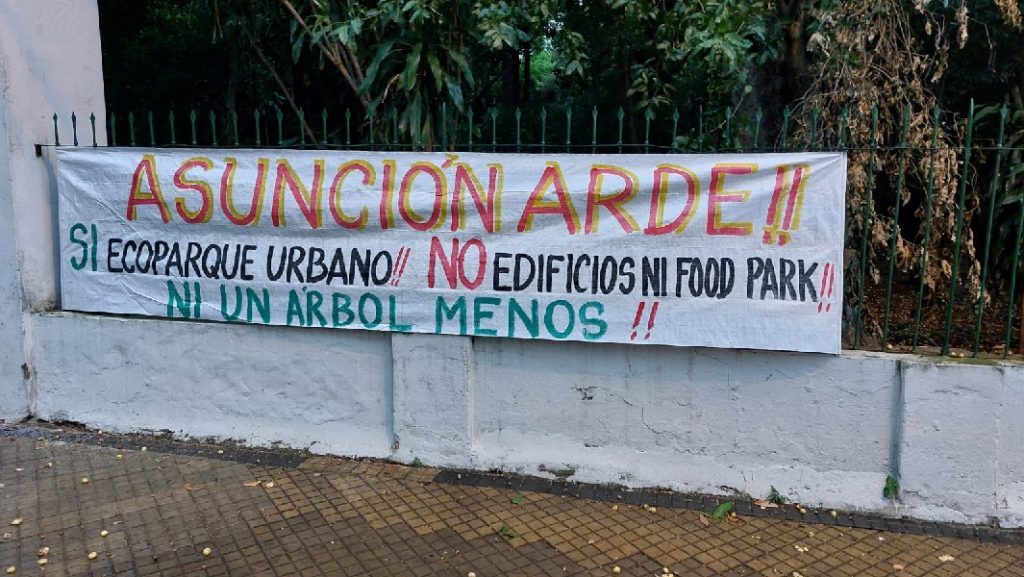 ASUNCIÓN ARDE!!
SI ECOPARQUE URBANO!! NO EDIFICIOS NI FOOD PARK!!
NI UN ÁRBOL MENOS !!